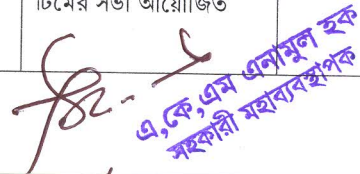 টিমের সভা আয়োজিত
এ,কে,এম এনামুল হক
সহকারী মহাব্যবস্থাপক